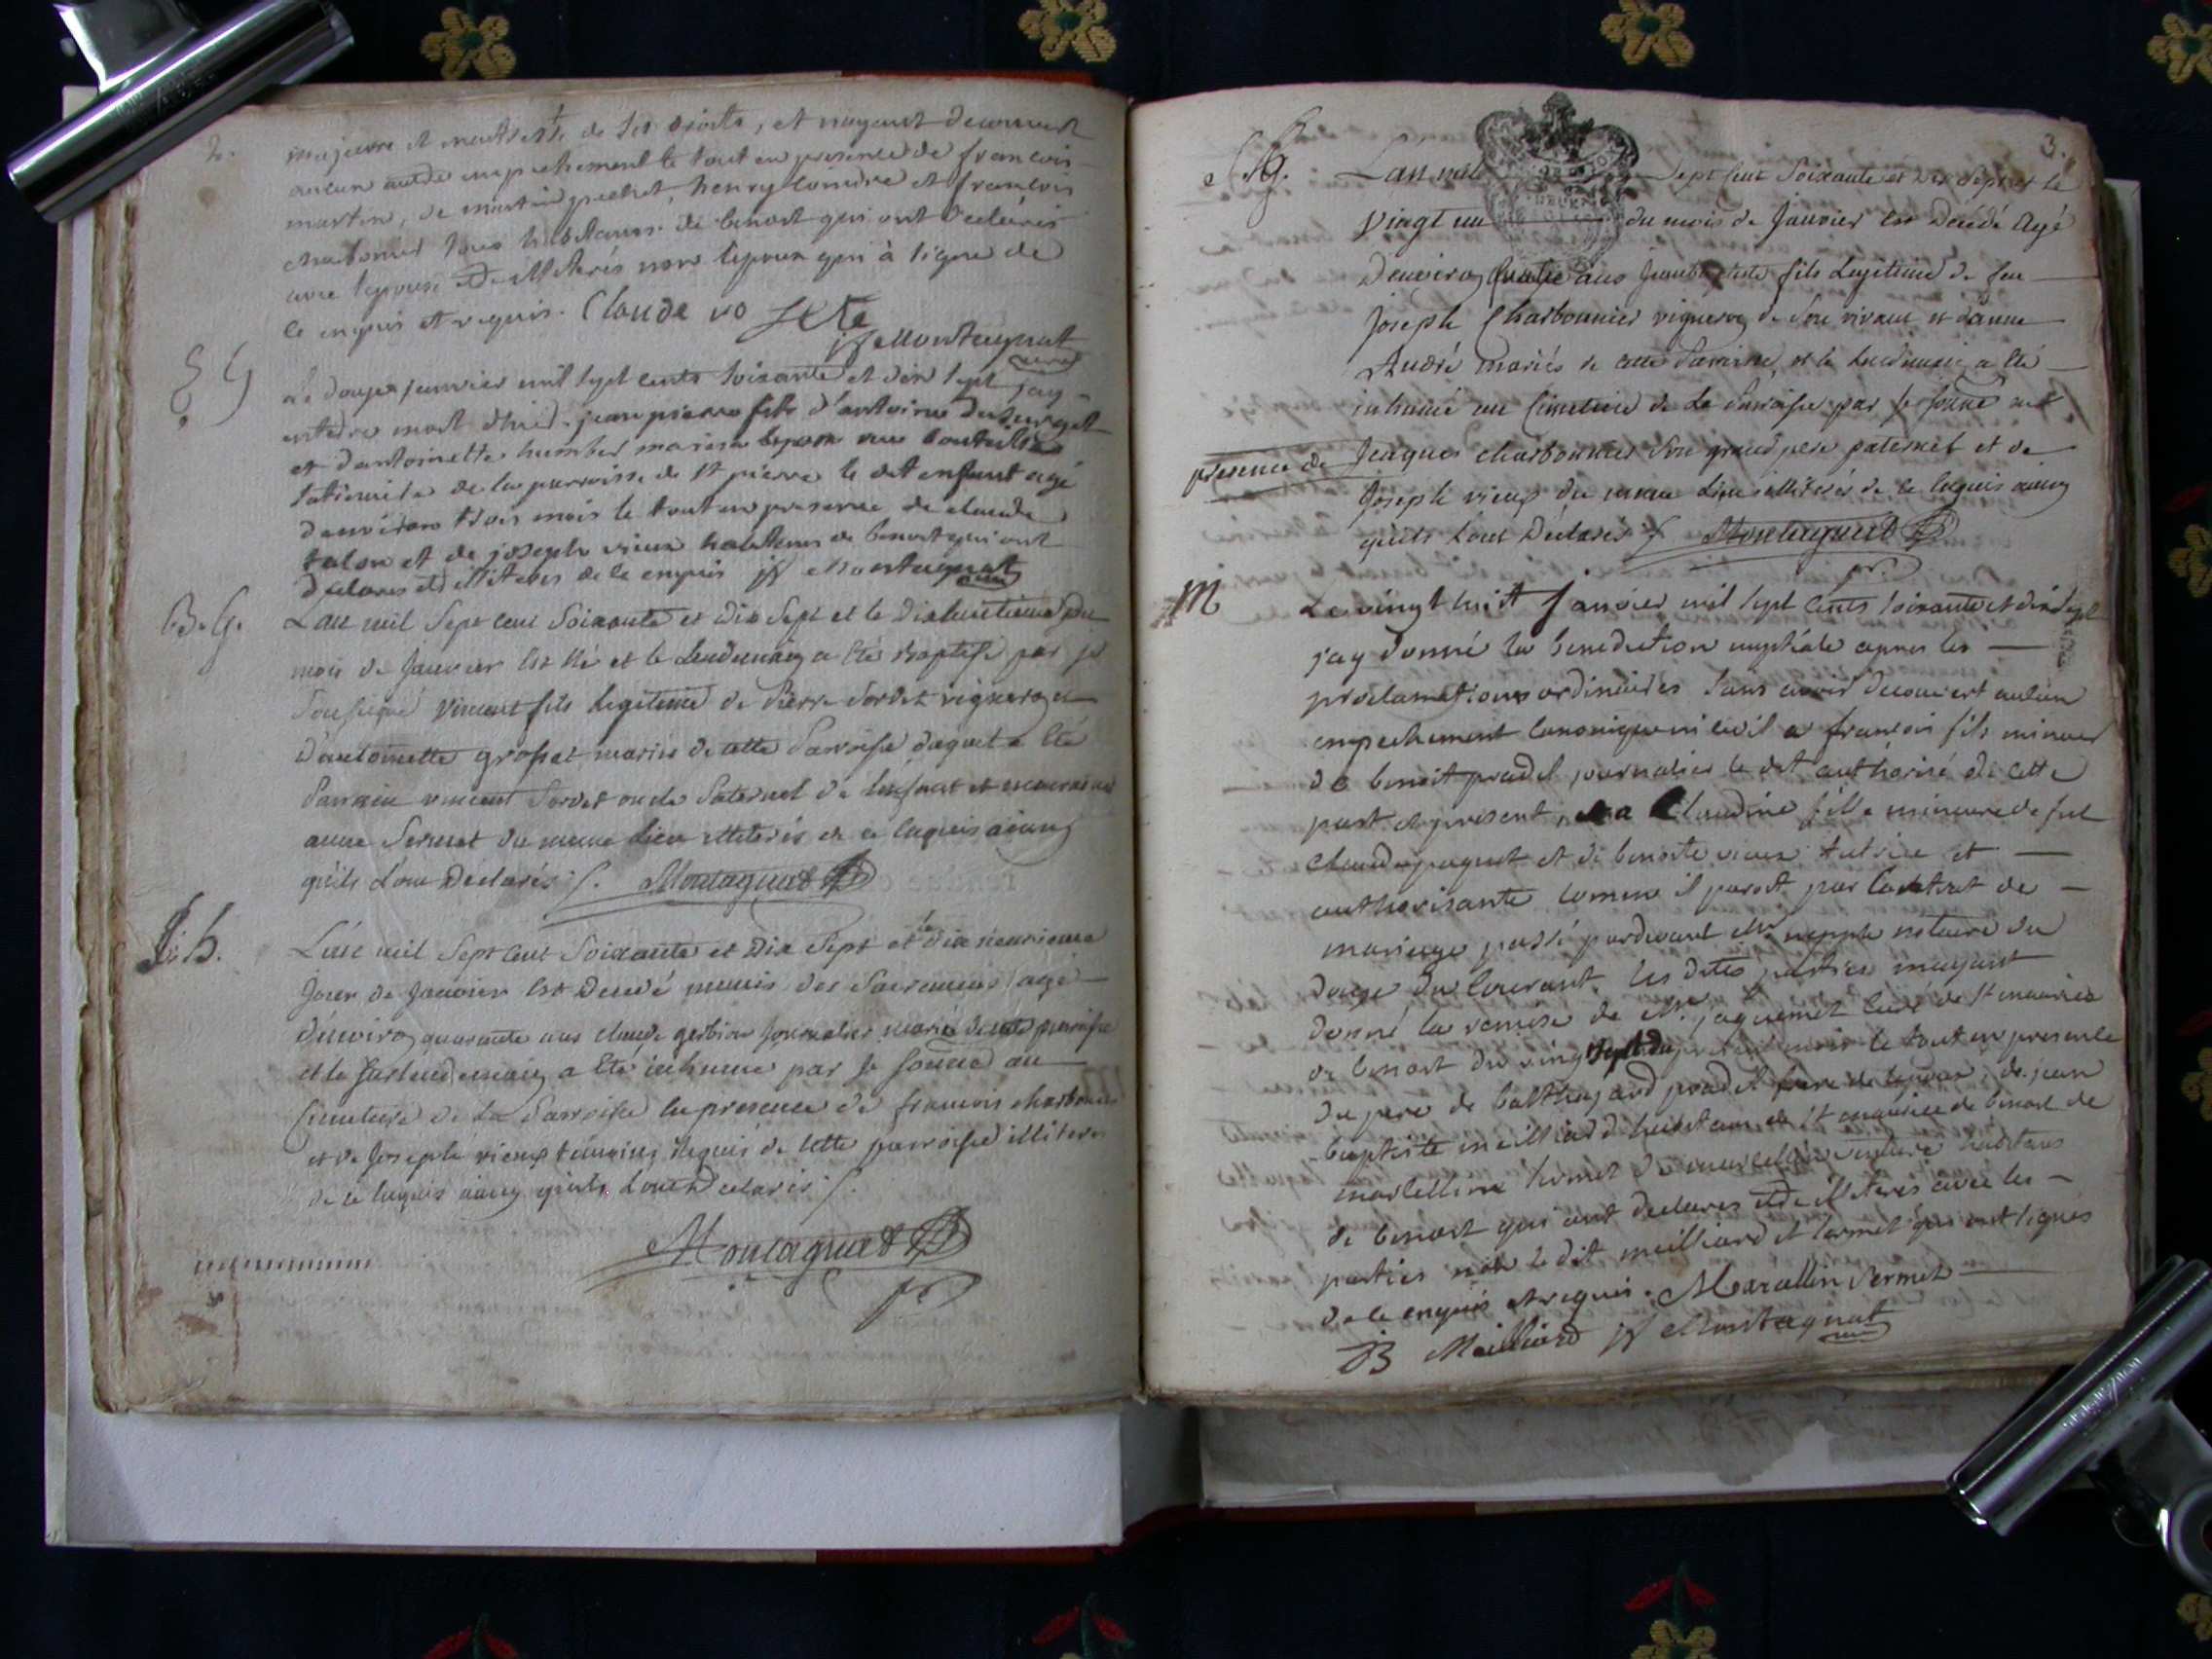 2.
majeure et maitresse de ses droits, et nayant decouvert
aucun autre empechement le tout en presence de francois
martin, de martin pochet, henry loindre et francois
charbonier tous habitans de benost qui ont declarés
avec lepouse etre illiterés non lepoux qui à signé de
ce enquis et requis. Claude
jf Montagnat
curé
Le douze janvier mil sept cents soixante et dix sept jay
enterré mort d'hier jean pierre fils d'antoine
et d'antoinette humbert mariés
de la parroisse de st pierre le dit enfant agé
denviron trois mois le tout en presence de claude
talon et de joseph vieux habitans de benost qui ont
declarés etre illiterés de ce enquis jf Montagnat
curé
B. G.
L'an mil sept cent soixante et dix sept et le dixhuitieme du
mois de Janvier est né et le lendemain a été baptisé par je
soussigné vincent fils legitime de Pierre Sordet vigneron et
d'antoinette grossat mariés de cette Parroisse duquel a été
Parrain vincent Sordet oncle Paternel de lenfant et marraine
anne Sermet du meme lieu illiterés de ce enquis ainsy
qu'ils l'ont Déclarés /. Montagnat
S. h.
L'an mil sept cent soixante et dix sept et le dix neuvieme
jour de Janvier est décedé munis des Sacremens agé
d'environ quarante ans claude gerbier journalier marié de cette parroisse
et le surlendemain a été inhumé par je soussigné au
Cimetiere de la Parroisse en presence de francois charbonier
et de Joseph vieux témoins requis de cette parroisse illiterés
de ce enquis ainsy qu'ils l'ont declarés /.
Montagnat
3.
S. G.
L'an mil sept cent soixante et dix sept et le
vingt un du mois de Janvier est decédé agé
d'environ quatre ans Jean baptiste fils legitime de feu
joseph Charbonnier vigneron de son vivant et d'anne
André mariés de cette Parroisse, et le lendemain a été
inhumé au Cimetiere de la Parroisse par je soussigné en
presence de Jaques charbonnier son grand pere paternel et de
joseph vieux du meme lieu illiterés de ce enquis ainsy
qu'ils l'ont Déclarés /. Montagnat
M
Le vingt huit janvier mil sept cents soixante et dix sept
jay donné la benediction nuptiale apres les
proclamations ordinaires sans avoir decouvert aucun
empechement canonique ni civil a francois fils mineur
de benoit pradel journalier le dit authorisé de cette
part et present, et a Claudine fille mineure de feu
claude paquet et de benoite vieux tutrice et
authorisante comme il paroit par Contrat de
mariage passé pardevant Mr notaire du
douze du courant. les dites parties mayant
donné la remise de Mr. jaquemet curé de st maurice
de benost du vingt sept du present mois le tout en presence
du pere de balthazard pradel frere de lepoux, de jean
baptiste meilliard habitans de st maurice de benost de
marcellin sermet de marcellin habitans
de benost qui ont declarés etre illiterés avec les
parties non le dit meilliard et sermet qui ont signés
de ce enquis et requis. Marcellin Sermet
JB Meilliard jf Montagnat
curé